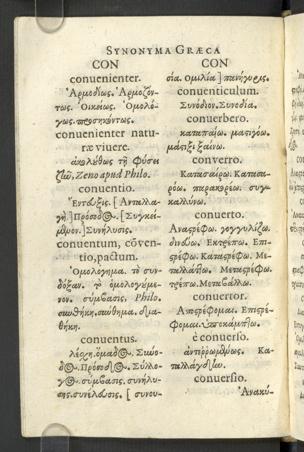 SYNONYMA GRÆCA
CON
conuenienter.
Ἁρμοδίως. Ἁρμοζόν-
τως. Οἰκείως. Ὁμολό-
γως. προσηκόντως.
conuenienter natu-
ræ viuere.
ἀκολούθως τῇ φύσει
ζῶ, Zeno apud Philo.
conuentio.
Ἔντευξις. [ Ἀνταλλα-
γή.] Πρόσοδος. [ Συγκεί-
μενον. ] Συνήλυσις.
conuentum, cõuen-
tio, pactum.
Ὁμολόγημα. τὸ συν-
δόξαν. τὸ ὁμολογούμε-
νον. σύμβασις. Philo.
συνθήκη. σύνθημα. δια-
θήκη.
conuentus.
λέσχη. ὅμαδος. Σύνο-
δος. Πρόσοδος. Σύλλο-
γος. σύμβασις. συνήλυ-
σις. συνέλευσις. [ συνου-
CON
σία. ὁμιλία ] πανήγυρις.
conuenticulum.
Συνόδιον. Συνοδία.
conuerbero.
καταπαίω. μαστιγόω.
μάστιξι ξαίνω.
conuerro.
Κατασαίρω. Κατασα-
ρόω. παρακορέω. συγκ
καλλύνω.
conuerto.
Ἀναστρέφω. γογγυλίζω.
δινεύω. Ἐκτρέπω. Ἐπι-
στρέφω. Καταστρέφω. Με-
ταλλάττω. Μεταστρέφω.
τρέπω. Μεταβάλλω.
conuertor.
Ἀποστρέφομαι. Ἐπιστρέ-
φομαι. ὑποκάμπτω.
è conuerso.
ἀντιῤῥωμένως. Κα-
ταλλάγδην.
conuersio.
Ἀνακύ-